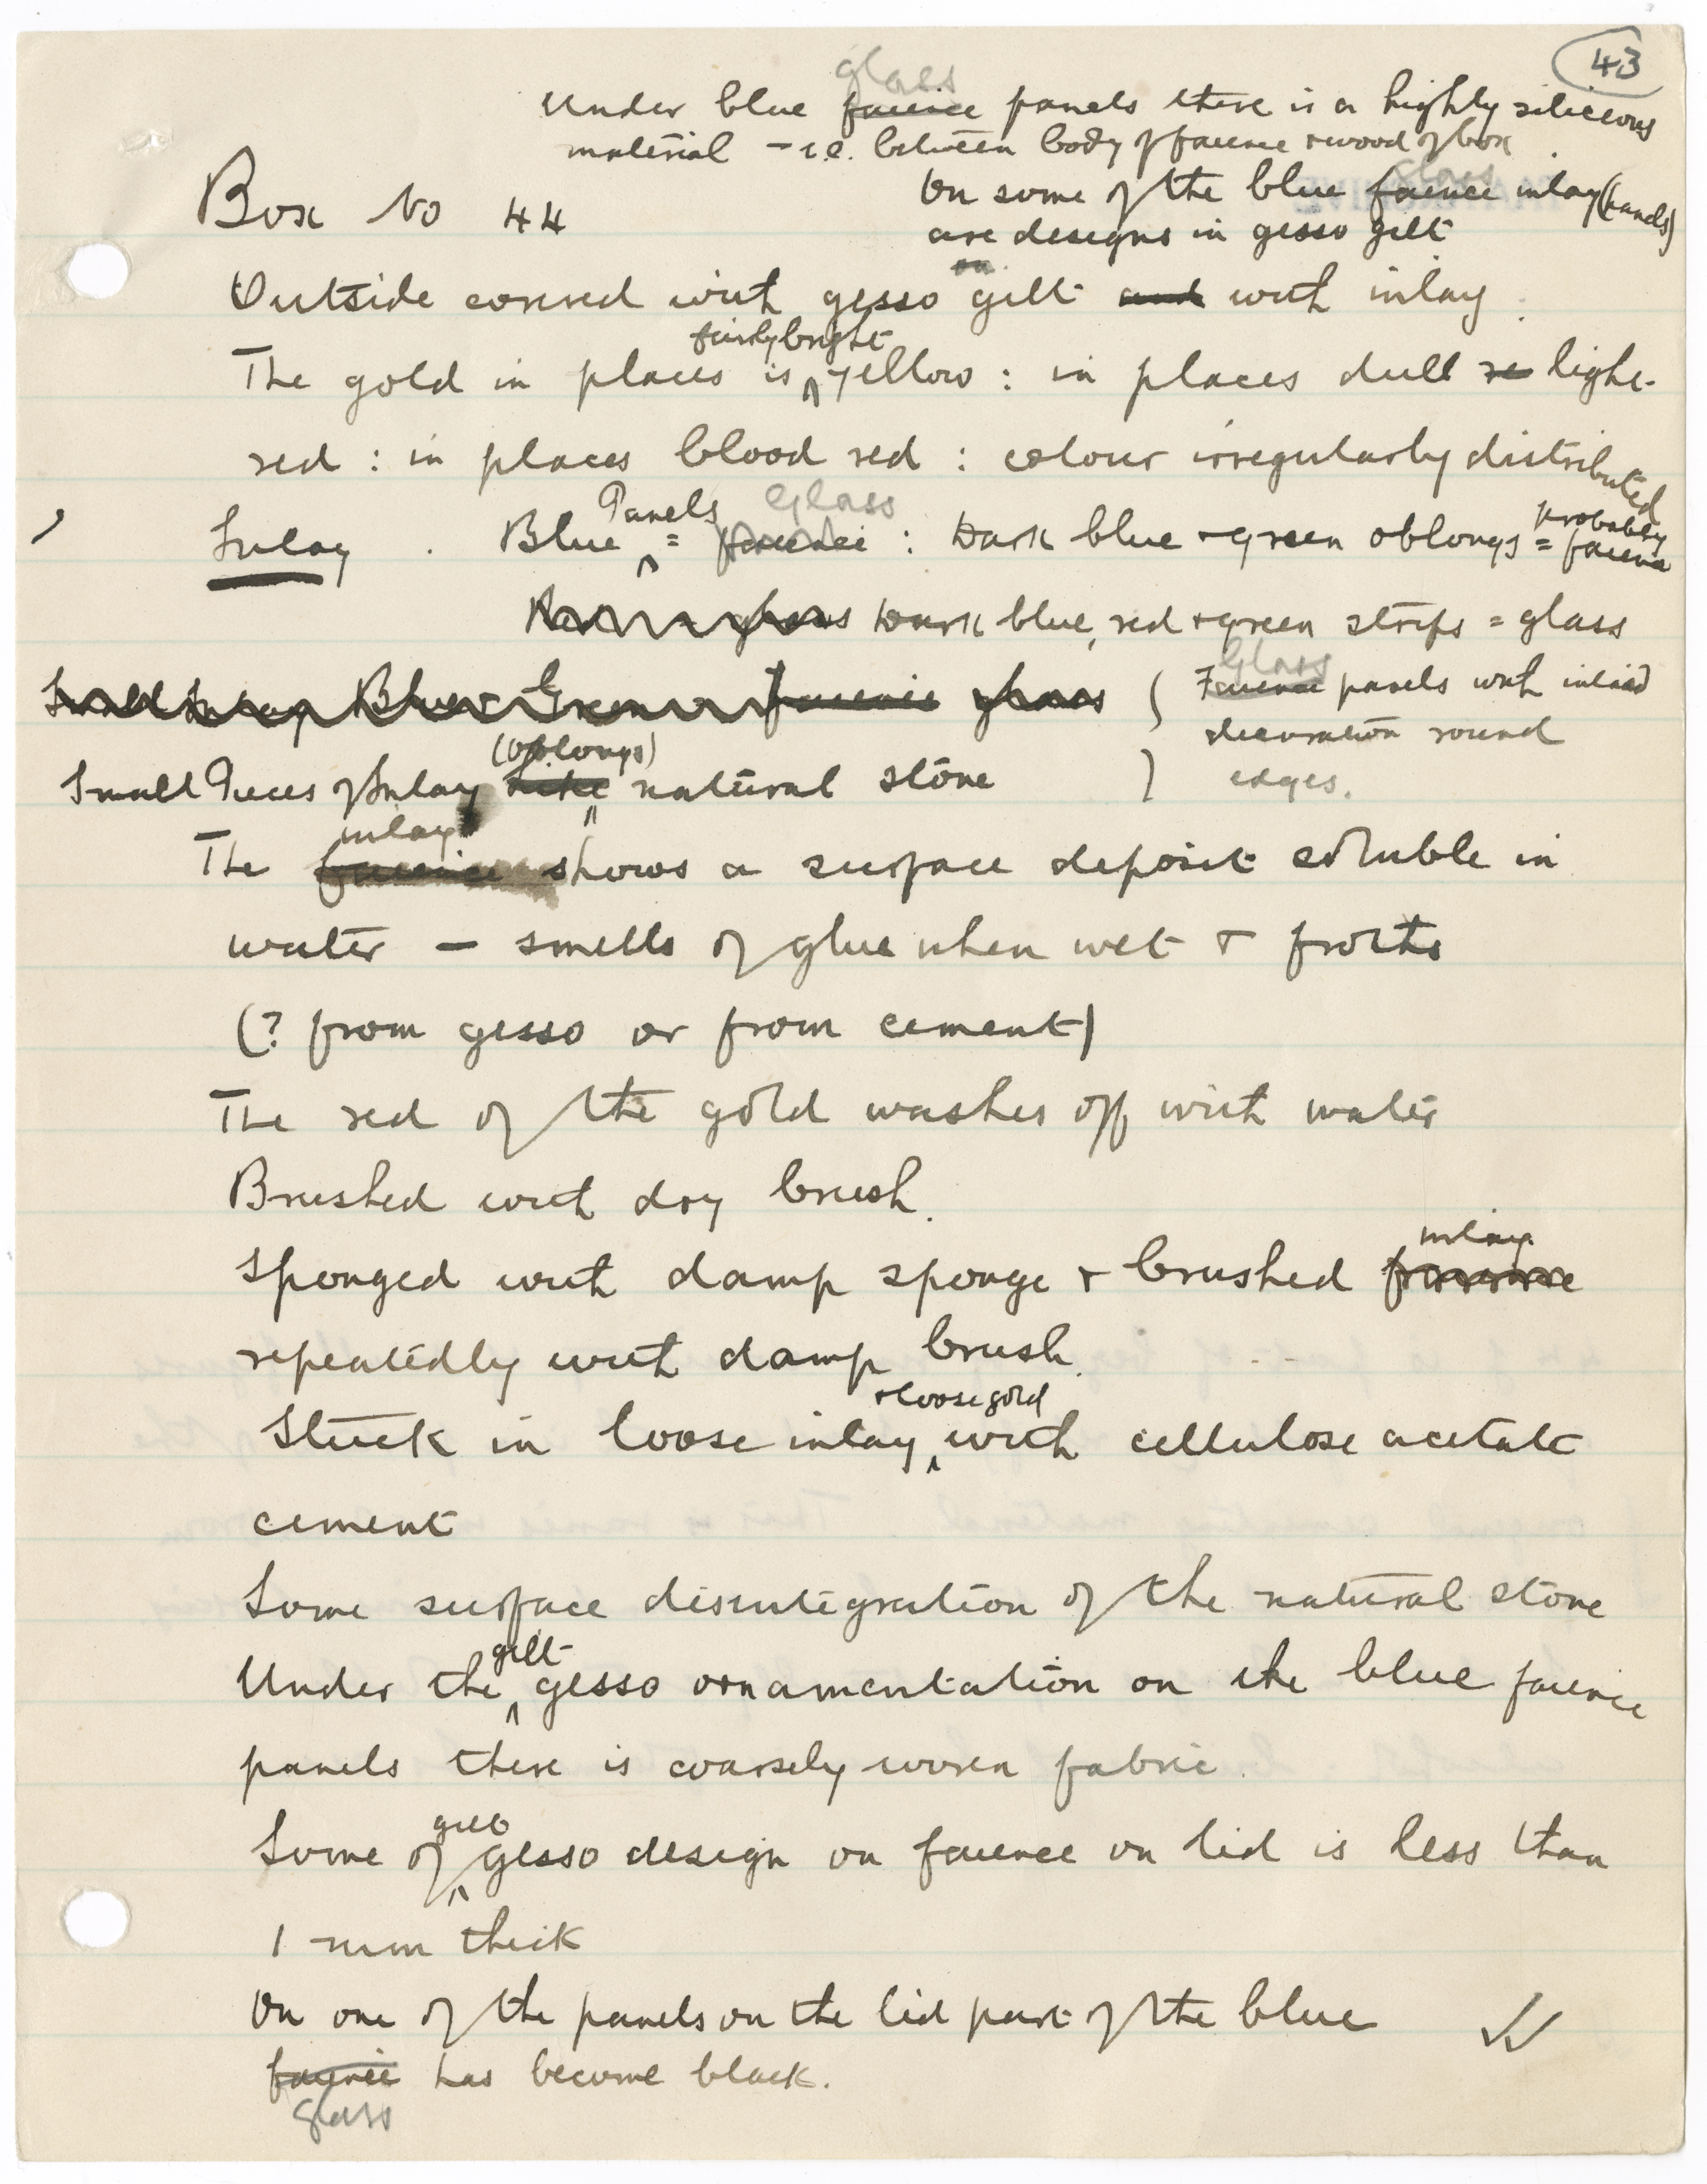 43
glass
Under blue faience panels there is a highly siliceous
material - i.e. between body of faience + wood of box
Box No 44
glass
On some of the blue faience inlay (panels)
are designs in gesso gilt
on
Outside covered with gesso gilt and with inlay.
fairly bright
The gold in places is yellow : in places dull re light
red : in places blood red : colour irregularly distributed
Panels Glass
Inlay . Blue = faience : Dark blue + green oblongs = probably faience
glass Dark blue, red + green strips = glass
Small Inlay Blue Green faience glass
Glass
( Faience panels with inlaid
decoration round
) edges.
(oblongs)
Small Pieces of Inlay natural stone
inlay
The faience shows a surface deposit soluble in
water - smells of glue when wet + froths
(? from gesso or from cement)
The red of the gold washes off with water
Brushed with dry brush.
inlay
Sponged with damp sponge + brushed faience
repeatedly with damp brush.
+ loose gold
Stuck in loose inlay with cellulose acetate
cement
Some surface disintegration of the natural stone
gilt
Under the gesso ornamentation on the blue faience
panels there is coarsely woven fabric.
gilt
Some of gesso design on faience on lid is less than
1 mm thick
On one of the panels on the lid part of the blue
faience has become black.
glass